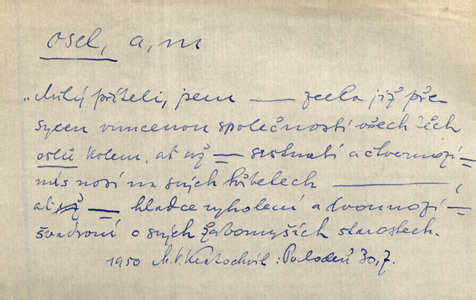 osel, a, m
„Milý příteli, jsem —— zcela již pře
sycen vnucenou společností všech těch
oslů kolem, ať už = srstnatí a čtvernozí =
nás nosí na svých hřbetech ————,
ať = hladce vyholení a dvounozí =
švadroní o svých žabomyších starostech.
1950 M. V. Kratochvíl: Puloden 30,7.